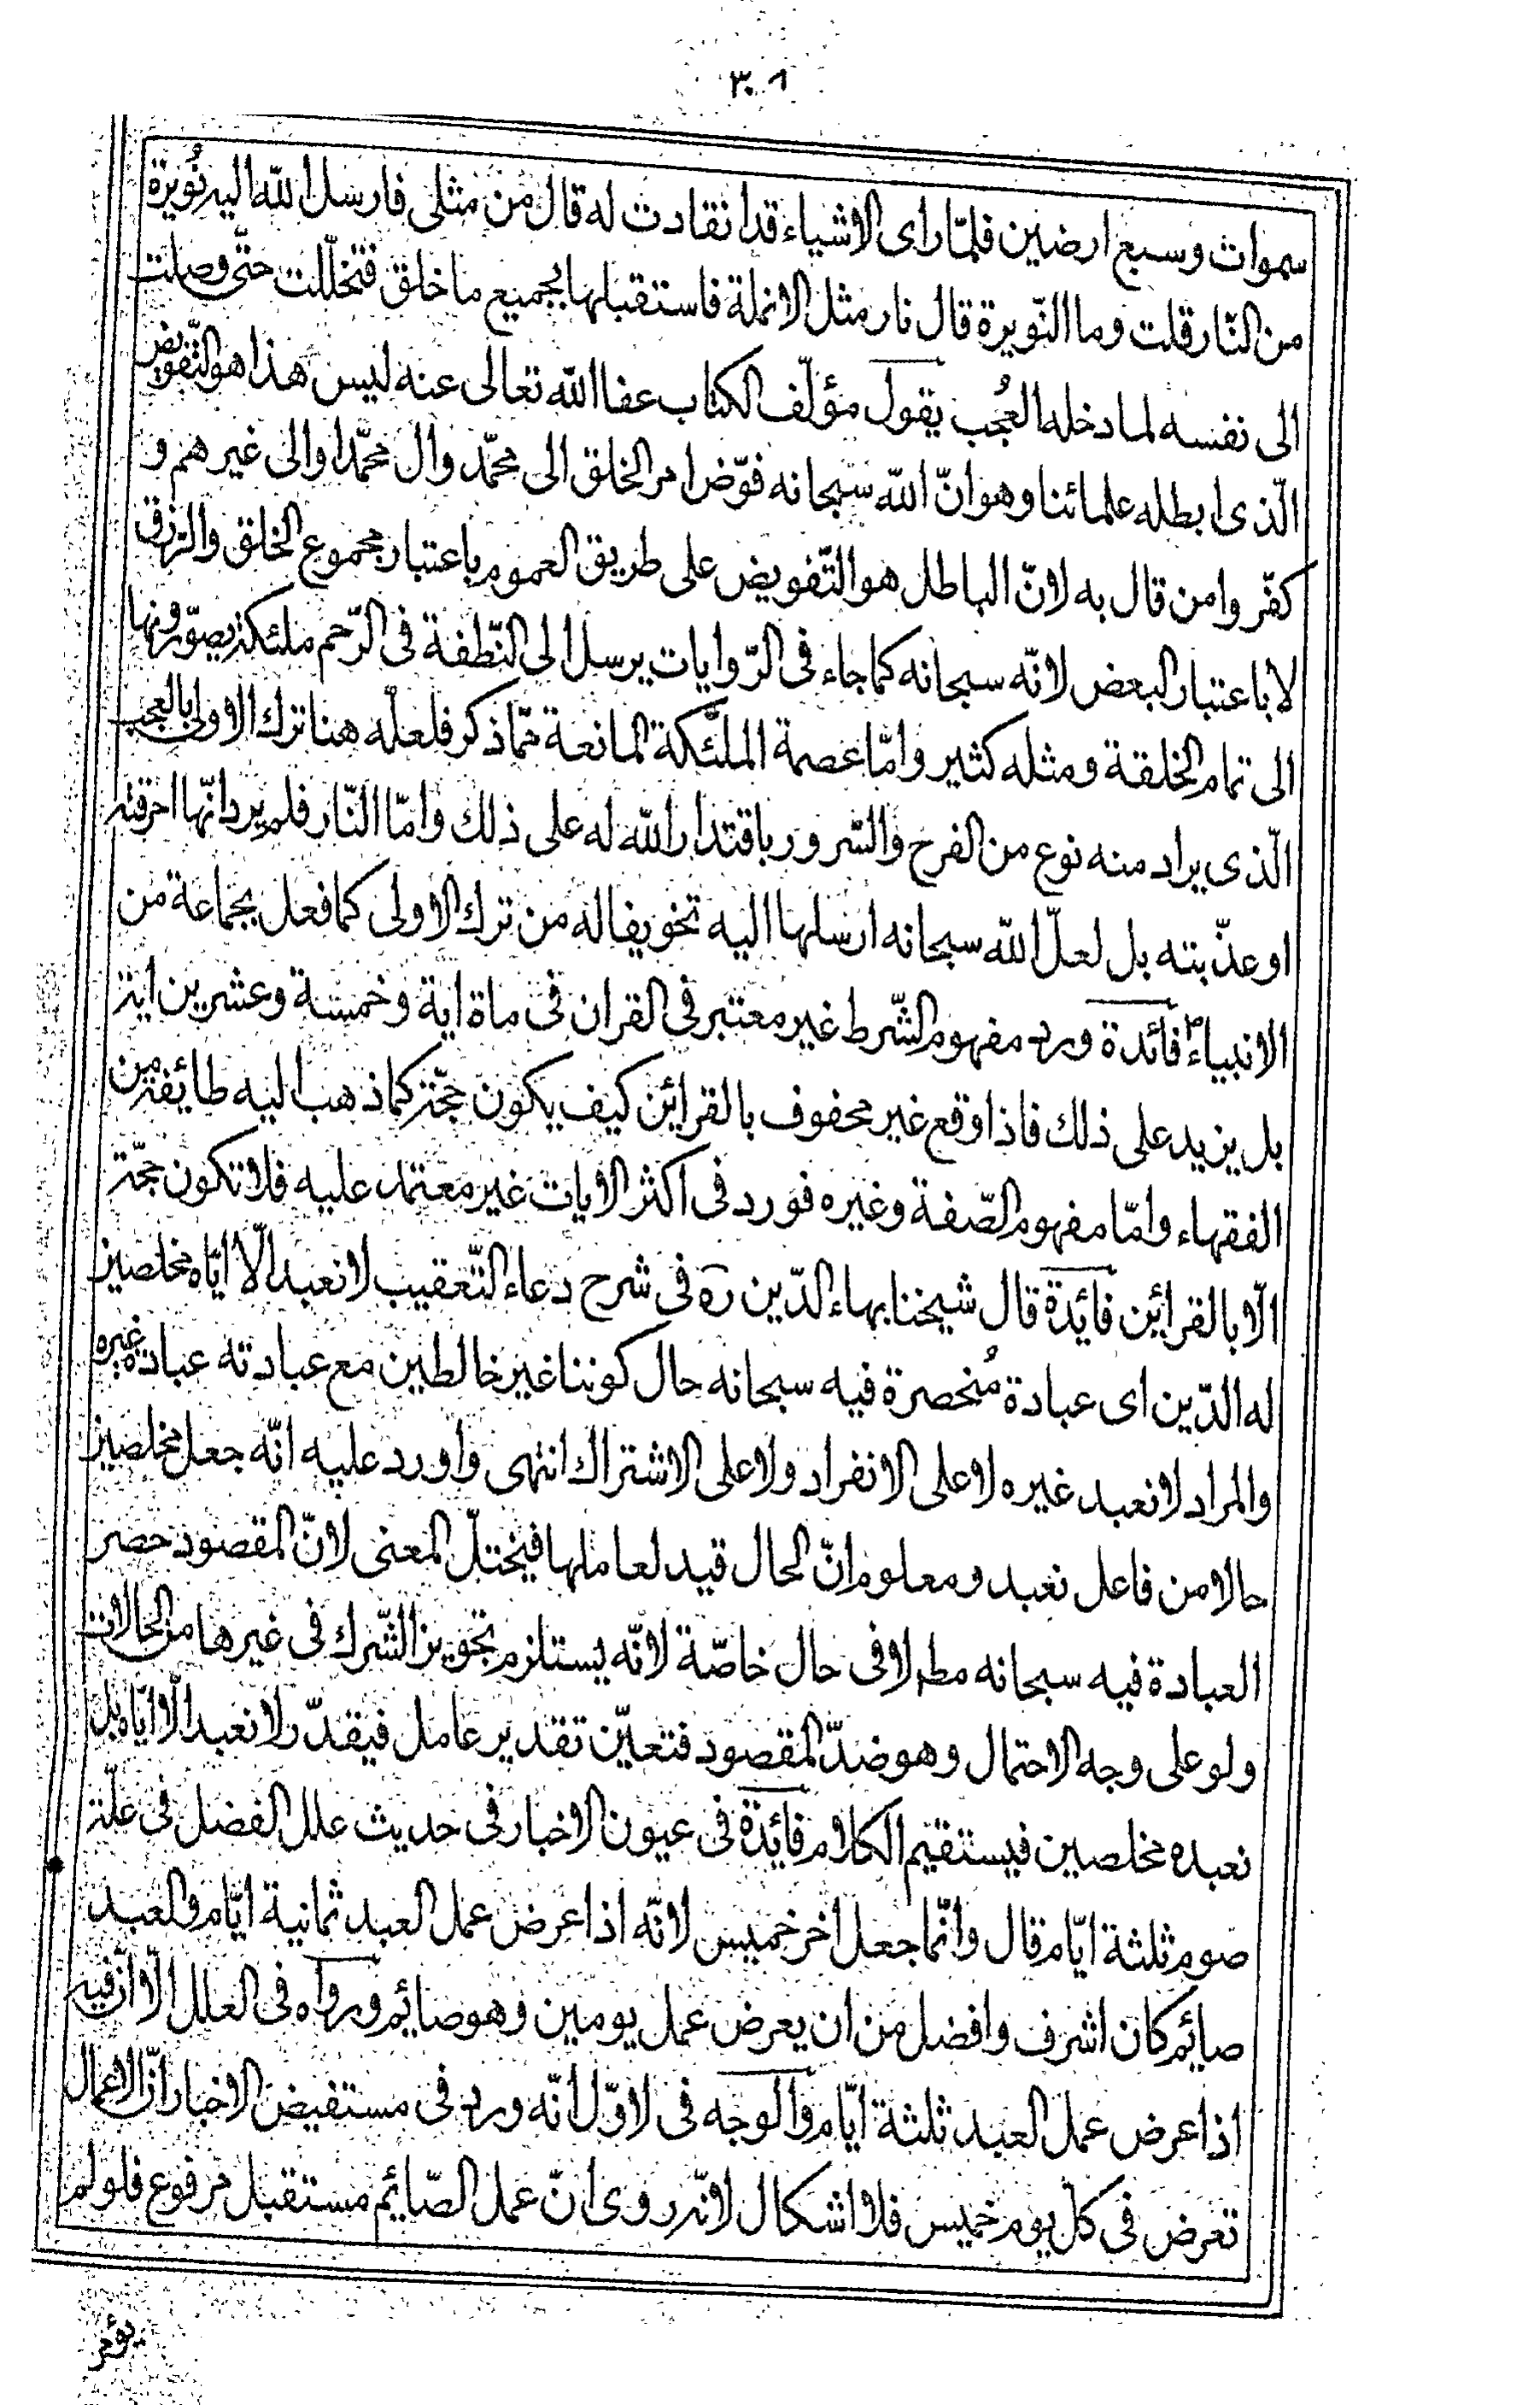 ٣٠٨
سموات وسبع ارضين فلمّا راى الاشياء قد انقادت له قال من مثلى فارسل الله اليه نُويرة
من النّار قلت وما النّويرة قال نار مثل الانملة فاستقبلها بجميع ما خلق فتخلّلت حتّى وصلت
الى نفسه لما دخله العُجب يقول مؤلّف الكتاب عفا الله تعالى عنه ليس هذا هو التّفويض
الّذى ابطله علمائنا وهو انّ الله سبحانه فوّض امر الخلق الى محمّد وال محمّد او الى غيرهم و
كفّروا من قال به لانّ الباطل هو التّفويض على طريق العموم باعتبار مجموع الخلق والرّزق
لا باعتبار البعض لانّه سبحانه كما جاء فى الرّوايات يرسل الى النّطفة فى الرّحم ملئكة يصوّرونها
الى تمام الخلقة ومثله كثير وامّا عصمة الملئكة المانعة ممّا ذكر فلعلّه هنا ترك الاولى بالعجب
الّذى يراد منه نوع من الفرح والسّرور باقتدار الله له على ذلك وامّا النّار فلم يرد انّها احرقته
او عذّبته بل لعلّ الله سبحانه ارسلها اليه تخويفا له من ترك الاولى كما فعل بجماعة من
الانبياء ع فائدة ورد مفهوم الشّرط غير معتبر فى القران فى ماة اية وخمسة وعشرين اية
بل يزيد على ذلك فاذا وقع غير محفوف بالقرائن كيف يكون حجّة كما ذهب اليه طائفة من
الفقهاء وامّا مفهوم الصّفة وغيره فورد فى اكثر الايات غير معتمد عليه فلا تكون حجّة
الّا بالقرائن فائدة قال شيخنا بهاء الدّين ره فى شرح دعاء التّعقيب لا نعبد الّا ايّاه مخلصين
له الدّين اى عبادة مُنحصرة فيه سبحانه حال كوننا غير خالطين مع عبادته عبادة غيره
والمراد لا نعبد غيره لا على الانفراد ولا على الاشتراك انتهى واورد عليه انّه جعل مخلصين
حالا من فاعل نعبد ومعلوم انّ الحال قيد لعاملها فيختلّ المعنى لانّ المقصود حصر
العبادة فيه سبحانه مطم لا فى حال خاصّة لانّه يستلزم تجويز الشّرك فى غيرها من الحالات
ولو على وجه الاحتمال وهو ضدّ المقصود فتعيّن تقدير عامل فيقدّر لا نعبد الّا ايّاه بل
نعبده مخلصين فيستقيم الكلام فائدة فى عيون الاخبار فى حديث علل الفضل فى علّة
صوم ثلثة ايّام قال وانّما جعل اخر خميس لانّه اذا عرض عمل العبد ثمانية ايّام والعبد
صائم كان اشرف وافضل من ان يعرض عمل يومين وهو صائم ورواه فى العلل الّا انّ فيه
اذا عرض عمل العبد ثلثة ايّام والوجه فى الاوّل انّه ورد فى مستفيض الاخبار انّ الاعمال
تعرض فى كلّ يوم خميس فلا اشكال لانّه روى انّ عمل الصّائم مستقبل مرفوع فلو لم